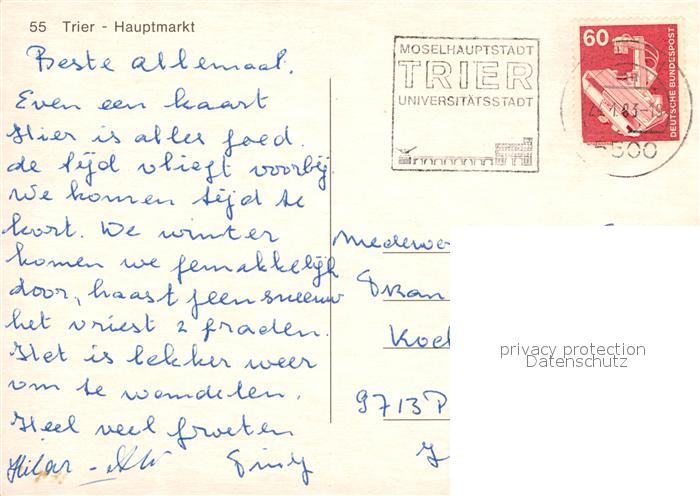 55 Trier - Hauptmarkt
Beste allemaal.
Even een kaart
Hier is alles goed.
de tijd vliegt voorbij
We komen tijd te
kort. De winter
komen we gemakkelijk
door, haast geen sneeuw
het vriest 2 graden.
Het is lekker weer
om te wandelen.
Heel veel groeten
Hilar -
MOSELHAUPTSTADT
TRIER
UNIVERSITÄTSSTADT
60
DEUTSCHE BUNDESPOST
5500
Medewe
Koe
9713 P
privacy protection
Datenschutz